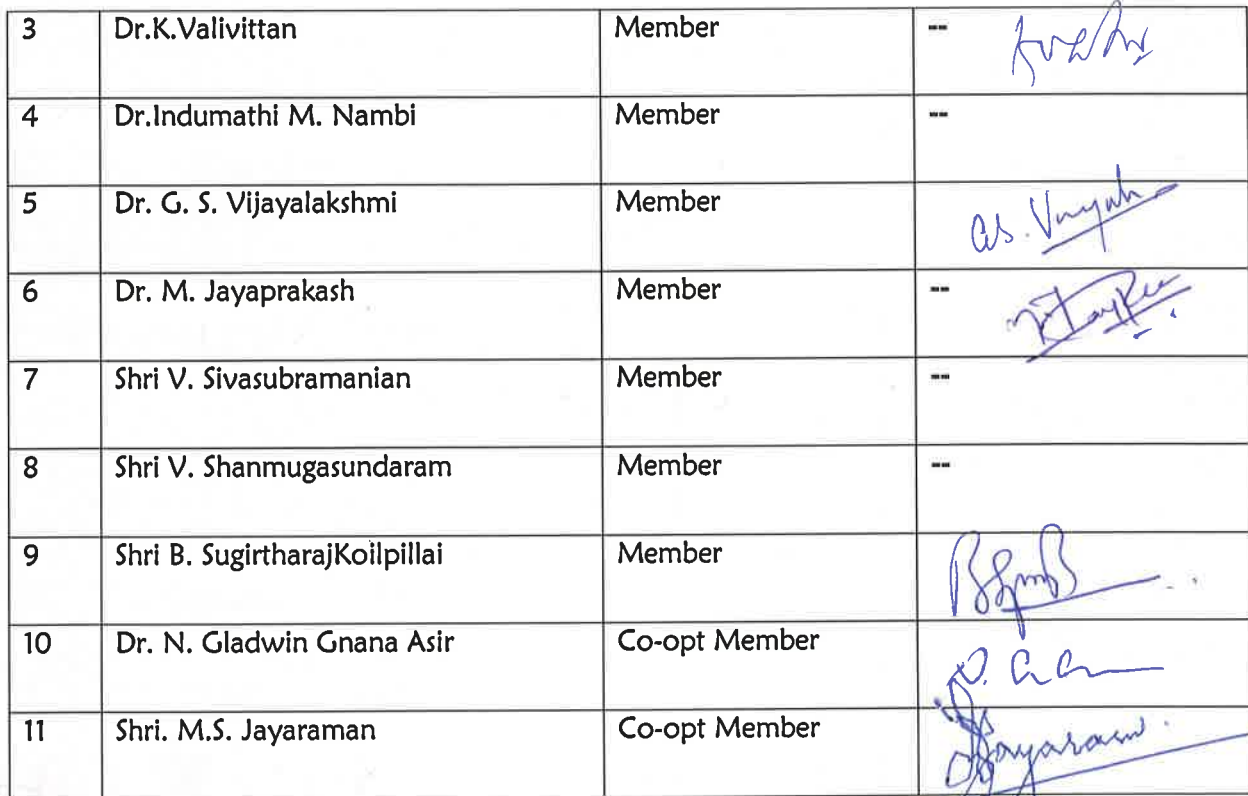 3 Dr.K.Valivittan Member --
4 Dr.Indumathi M. Nambi Member --
5 Dr. G. S. Vijayalakshmi Member
6 Dr. M. Jayaprakash Member --
7 Shri V. Sivasubramanian Member --
8 Shri V. Shanmugasundaram Member --
9 Shri B. SugirtharajKoilpillai Member
10 Dr. N. Gladwin Gnana Asir Co-opt Member
11 Shri. M.S. Jayaraman Co-opt Member